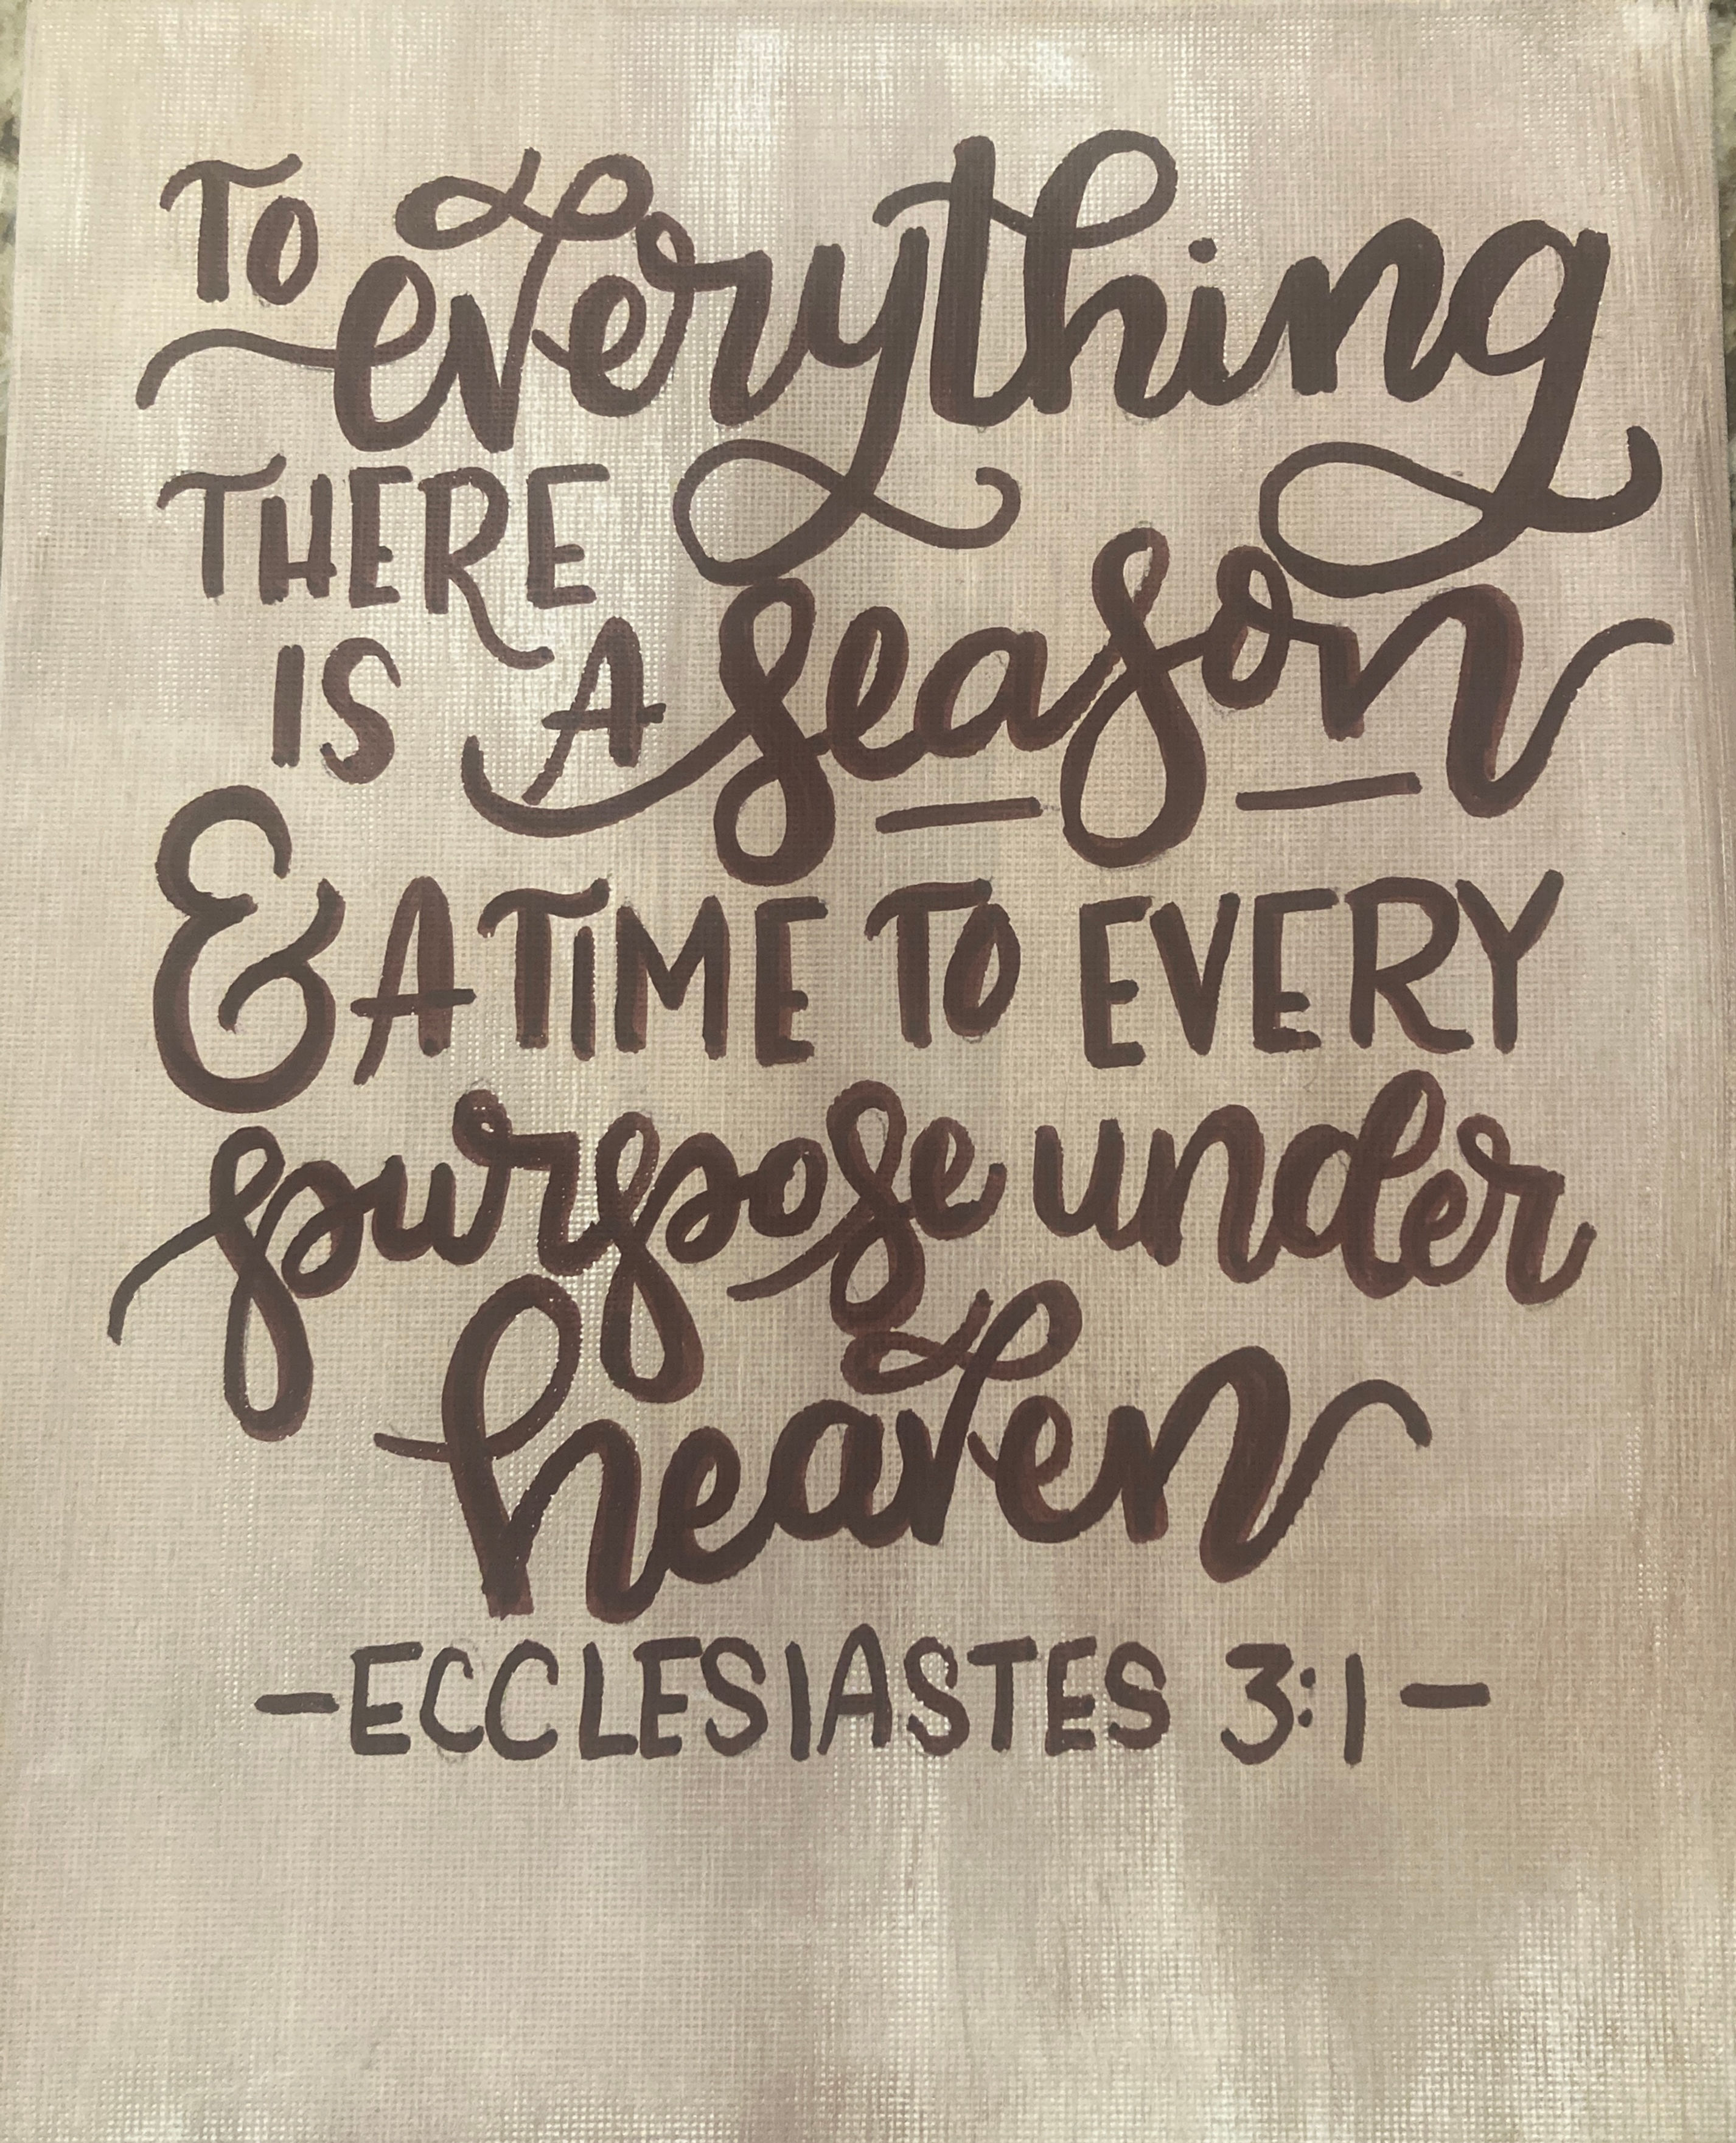 To everything
THERE
IS A season
& A TIME TO EVERY
purpose under
heaven
-ECCLESIASTES 3:1-